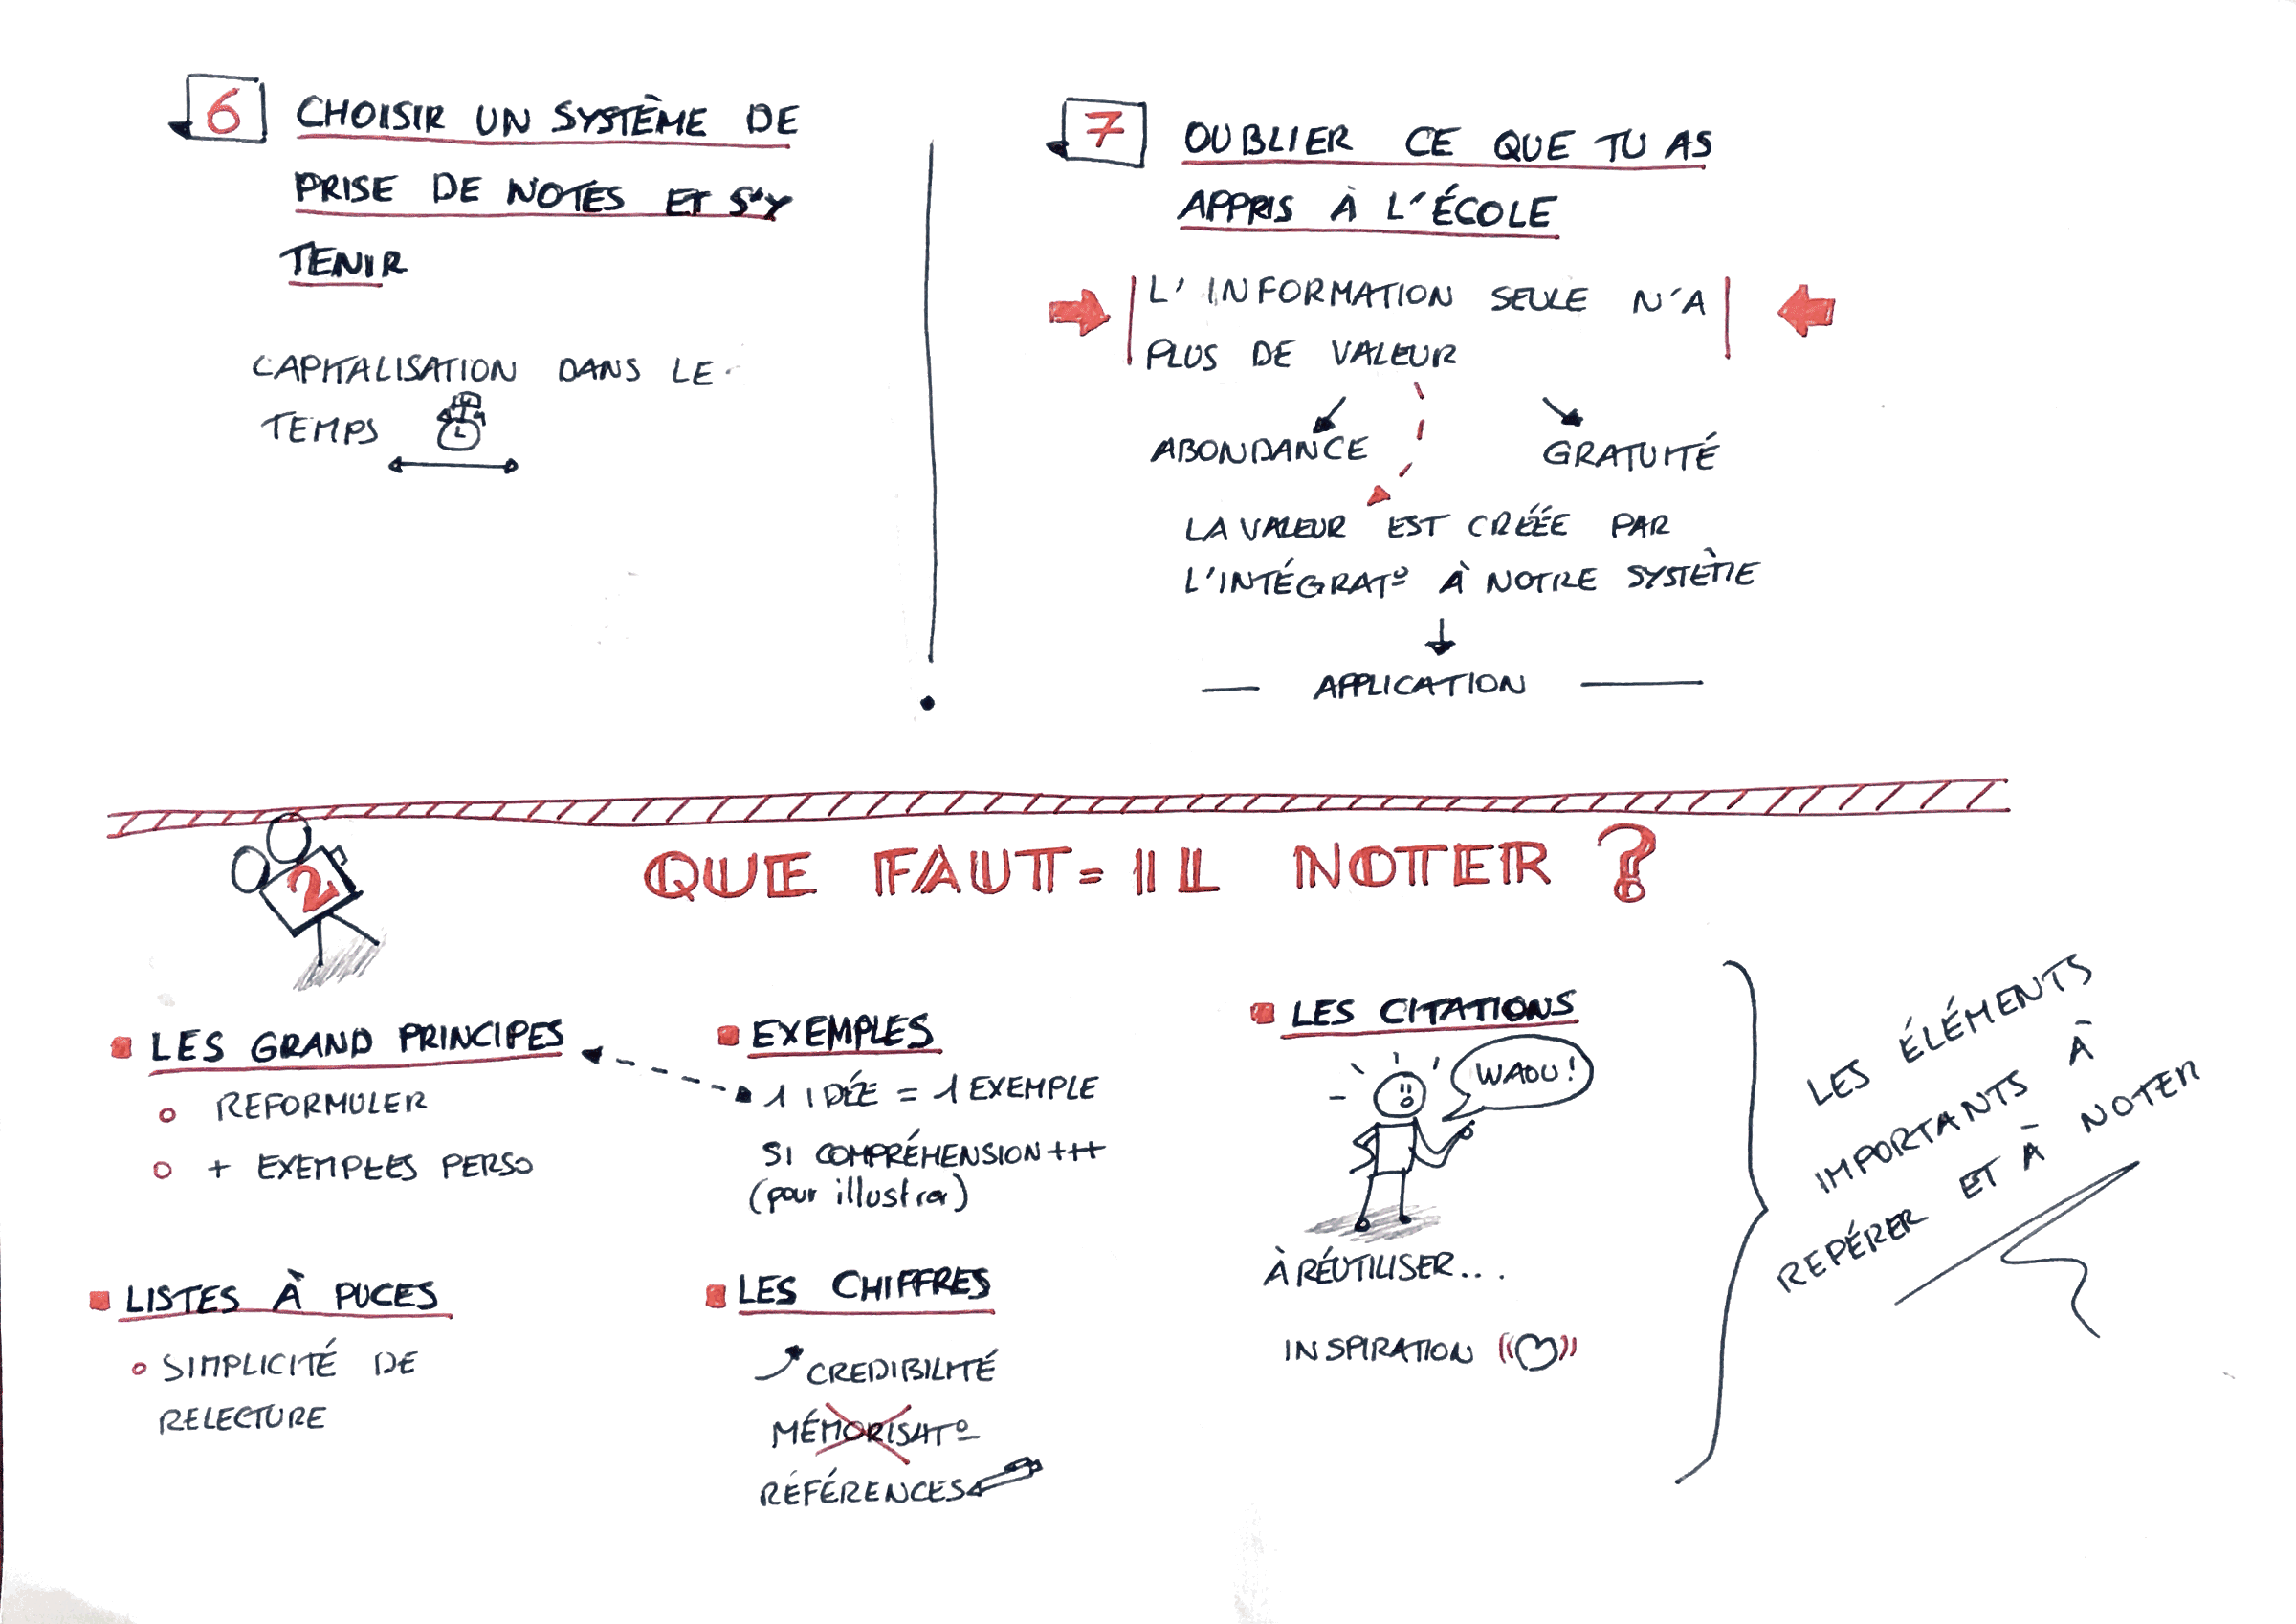 6 CHOISIR UN SYSTÈME DE
PRISE DE NOTES ET S'Y
TENIR
CAPITALISATION DANS LE
TEMPS
7 OUBLIER CE QUE TU AS
APPRIS À L'ÉCOLE
L'INFORMATION SEULE N'A
PLUS DE VALEUR
ABONDANCE
GRATUITÉ
LA VALEUR EST CRÉÉE PAR
L'INTÉGRATº À NOTRE SYSTÈME
APPLICATION
2
QUE FAUT=IL NOTER ?
LES GRAND PRINCIPES
REFORMULER
+ EXEMPLES PERSO
EXEMPLES
1 IDÉE = 1 EXEMPLE
SI COMPRÉHENSION +++
(pour illustrer)
LES CITATIONS
WAOU !
À RÉUTILISER...
INSPIRATION
LISTES À PUCES
SIMPLICITÉ DE
RELECTURE
LES CHIFFRES
CREDIBILITÉ
MÉMORISATº
RÉFÉRENCES
LES ÉLÉMENTS
IMPORTANTS À
REPÉRER ET À NOTER